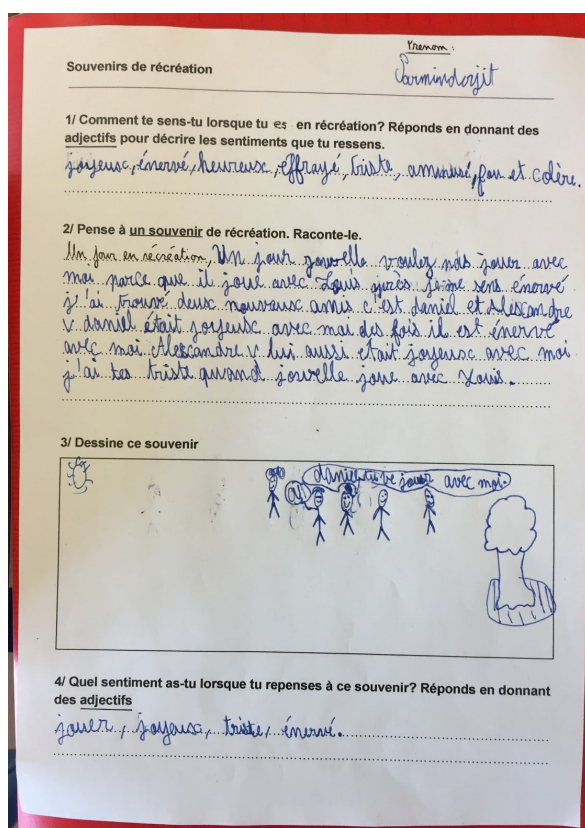 Prenom :
Souvenirs de récréation
Parmindorjit
1/ Comment te sens-tu lorsque tu es en récréation? Réponds en donnant des
adjectifs pour décrire les sentiments que tu ressens.
joyeusc, énervé, heureusc, effrayé, triste, ammusé, fou et colère.
2/ Pense à un souvenir de récréation. Raconte-le.
Un jour en récréation, Un jour jowelle voulez pas jouer avec
moi parce que il joue avec Louis après je me sens énervé
j'ai trouvé deusc nouveausc amis c'est daniel et Alescandre
v daniel était joyeusc avec moi des fois il est énervé
avec moi Alescandre v lui aussi etait joyeusc avec moi
j'ai tes triste quand jowelle joue avec Louis.
3/ Dessine ce souvenir
daniel tu ve jouer avec moi.
4/ Quel sentiment as-tu lorsque tu repenses à ce souvenir? Réponds en donnant
des adjectifs
jouer, joyeusc, triste, énervé.